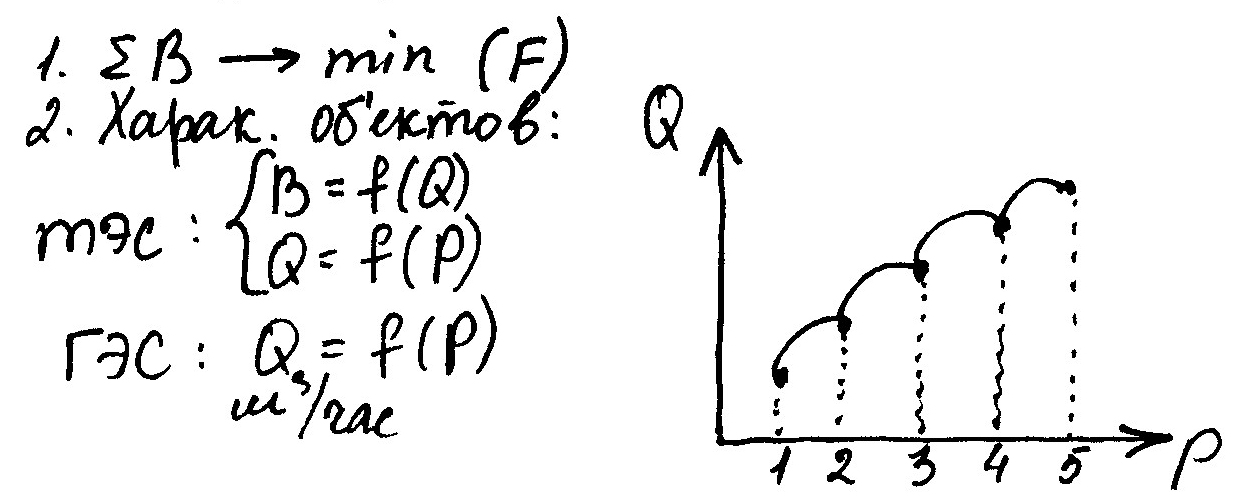 1. ΣB → min (F)
2. Харак. об'ектов:
ТЭС: { B = f(Q)
Q = f(P)
ГЭС: Q = f(P)
м³/час
Q
1 2 3 4 5 P